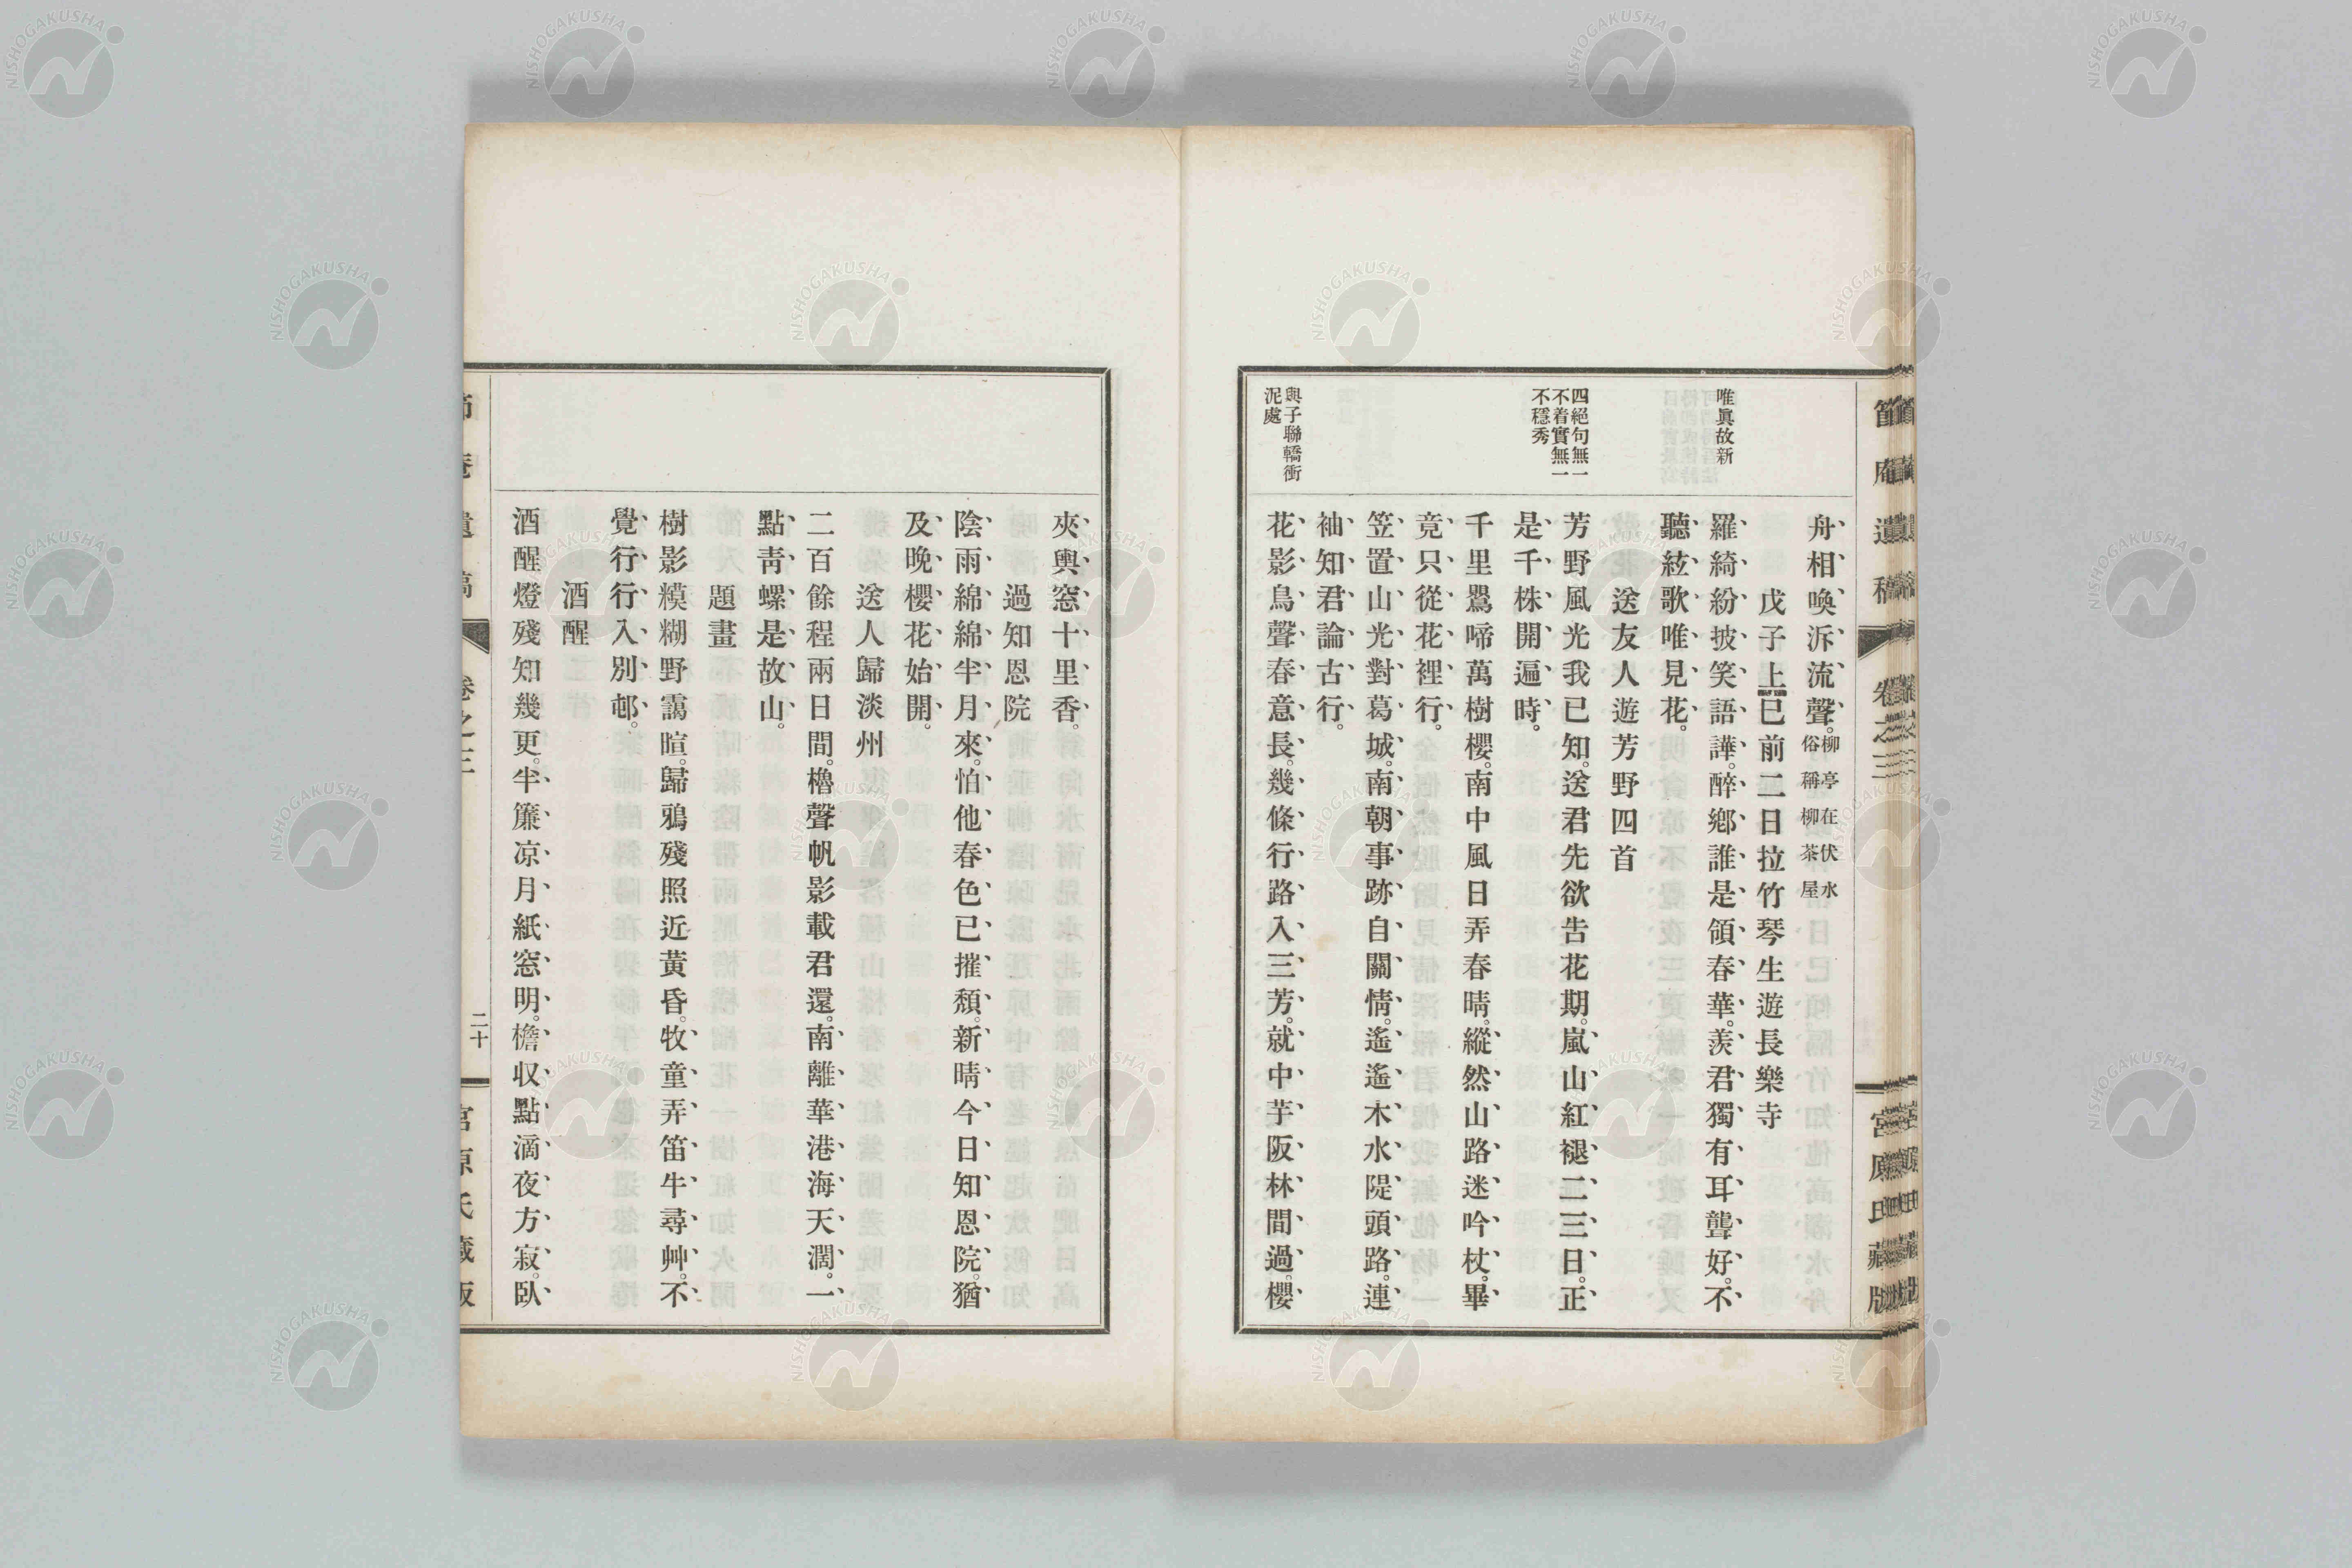 舟相喚泝流聲。柳亭在伏水俗稱柳茶屋
戊子上巳前二日拉竹琴生遊長樂寺
唯眞故新
羅綺紛披笑語譁。醉鄕誰是領春華。羨君獨有耳聾好。不
聽絃歌唯見花。
送友人遊芳野四首
四絕句無一
不着實無一
不穩秀
芳野風光我已知。送君先欲告花期。嵐山紅褪二三日。正
是千株開遍時。
千里鶯啼萬樹櫻。南中風日弄春晴。縱然山路迷吟杖。畢
竟只從花裡行。
笠置山光對葛城。南朝事跡自關情。遙遙木水隄頭路。連
袖知君論古行。
與子聯轎衝
泥處
花影鳥聲春意長。幾條行路入三芳。就中芋阪林間過。櫻
夾輿窓十里香。
過知恩院
陰雨綿綿半月來。怕他春色已摧頹。新晴今日知恩院。猶
及晚櫻花始開。
送人歸淡州
二百餘程兩日間。櫓聲帆影載君還。南離華港海天濶。一
點靑螺是故山。
題畫
樹影糢糊野靄暄。歸鴉殘照近黃昏。牧童弄笛牛尋艸。不
覺行行入別邨。
酒醒
酒醒燈殘知幾更。半簾凉月紙窓明。檐収點滴夜方寂。臥
卷之三
二十
NISHOGAKUSHA